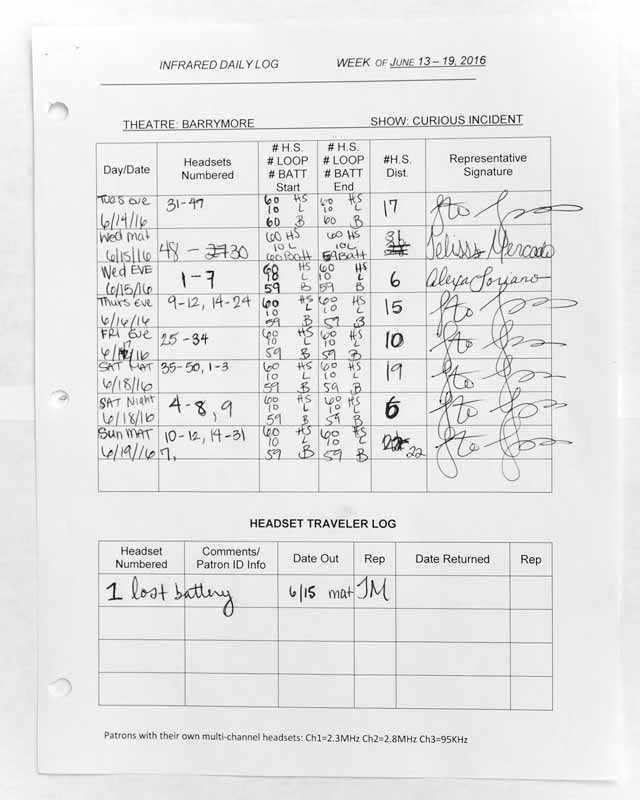 INFRARED DAILY LOG WEEK OF JUNE 13 – 19, 2016
THEATRE: BARRYMORE SHOW: CURIOUS INCIDENT
Day/Date Headsets Numbered # H.S. # LOOP # BATT Start # H.S. # LOOP # BATT End #H.S. Dist. Representative Signature
Tues eve 6/14/16 31-47 60 HS 10 L 60 B 60 HS 10 L 60 B 17
Wed mat 6/15/16 48 - 30 60 HS 10 L 60 Batt 60 HS 10 L 59 Batt Jelissa Mercado
Wed EVE 6/15/16 1-7 60 HS 10 L 59 B 60 HS 10 L 59 B 6 Alexa Soriano
Thurs eve 6/16/16 9-12, 14-24 60 HS 10 L 59 B 60 HS 10 L 59 B 15
FRI Eve 6/17/16 25-34 60 HS 10 L 59 B 60 HS 10 L 59 B 10
SAT MAT 6/18/16 35-50, 1-3 60 HS 10 L 59 B 60 HS 10 L 59 B 19
SAT Night 6/18/16 4-8, 9 60 HS 10 L 59 B 60 HS 10 L 59 B 6
Sun MAT 6/19/16 10-12, 14-31 7, 60 HS 10 L 59 B 60 HS 10 L 59 B 22
HEADSET TRAVELER LOG
Headset Numbered Comments/ Patron ID Info Date Out Rep Date Returned Rep
1 lost battery 6/15 mat JM
Patrons with their own multi-channel headsets: Ch1=2.3MHz Ch2=2.8MHz Ch3=95KHz